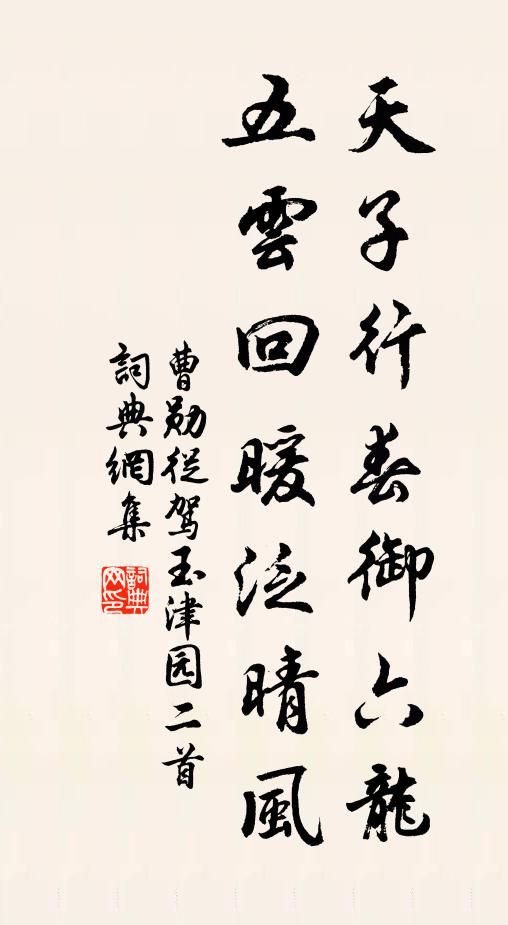 天子行春御六龍
五雲回暖泛晴風
曹勛從駕玉津园二首
詞典網集
詞典網印